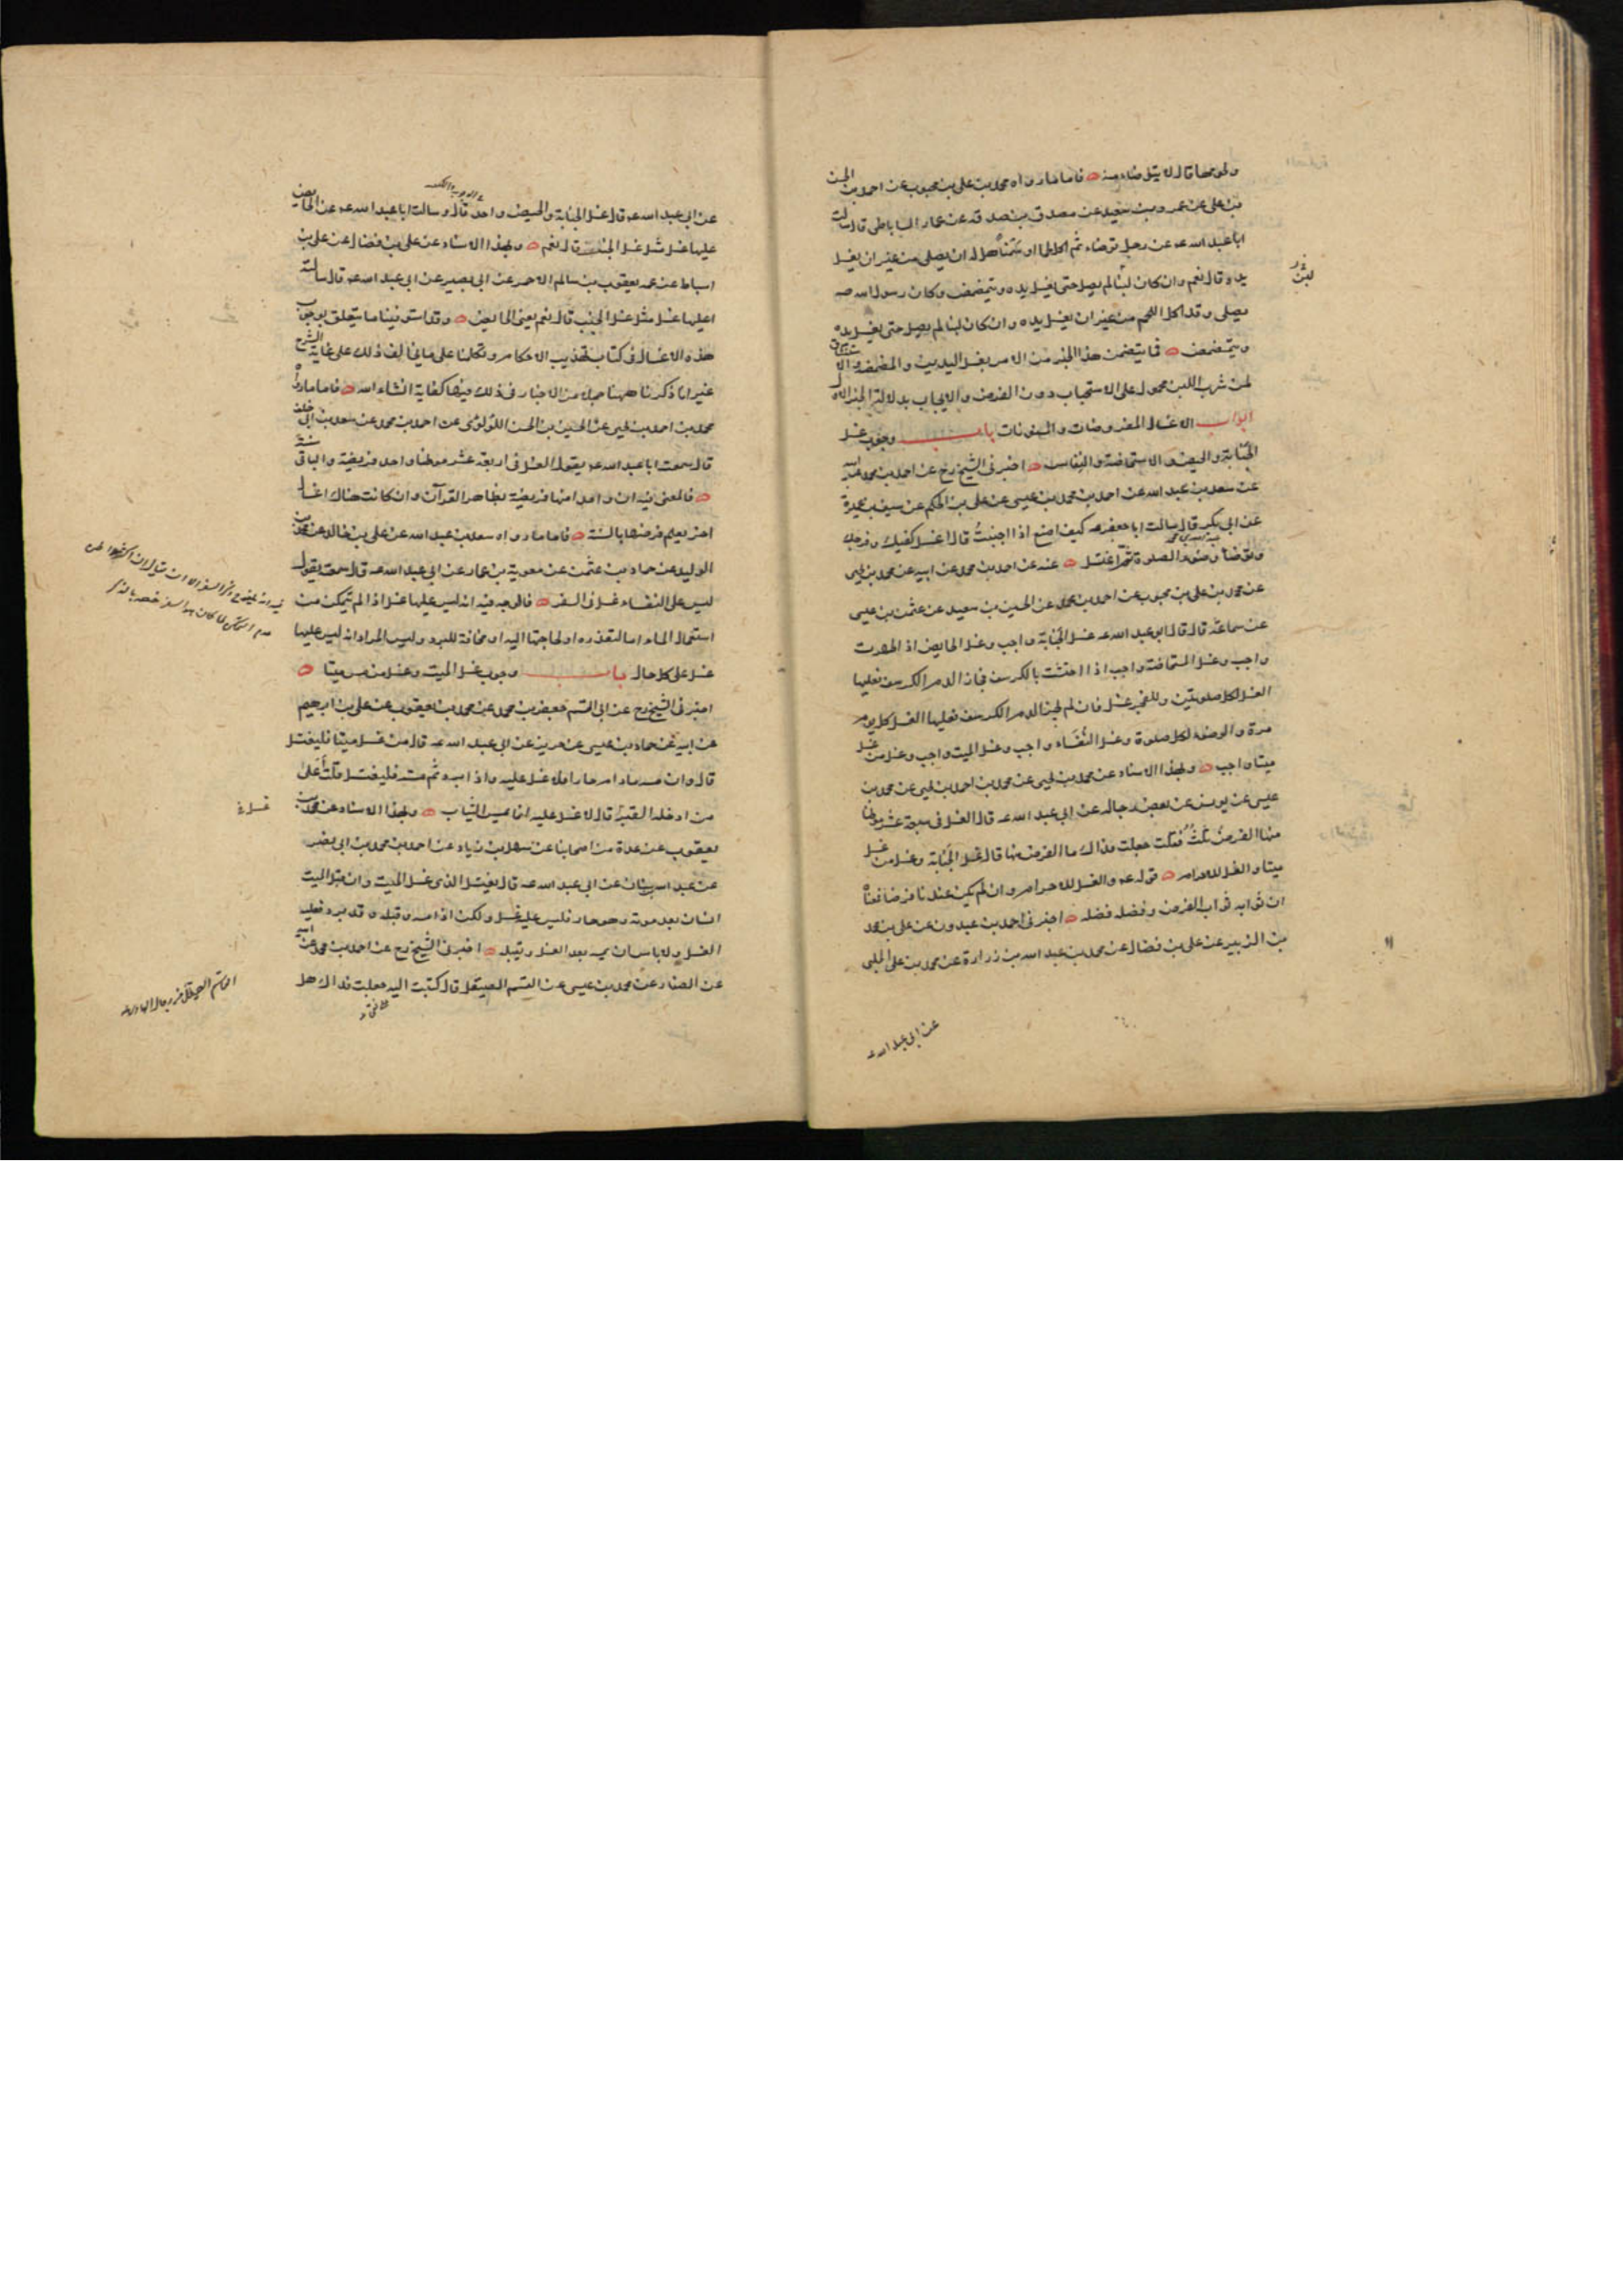 ولحومها قال لا يتوضاء منه فاما ما رواه محمد بن علي بن محبوب عن احمد بن الحسن
بن علي عن عمرو بن سعيد عن مصدق بن صدقه عن عمار الساباطي قال سالت
ابا عبد الله عه عن رجل توضاء ثم اكل لحما او سمنا هل له ان يصلي من غير ان يغسل
يده قال نعم وان كان لبنا لم يصل حتى يغسل يده ويتمضمض وكان رسول الله صه
يصلي وقد اكل اللحم من غير ان يغسل يده وان كان لبنا لم يصل حتى يغسل يده
ويتمضمض فما يتضمن هذا الخبر من الامر بغسل اليدين والمضمضه والاستنشاق
لمن شرب اللبن محمول على الاستحباب دون الفرض والايجاب بدلالة الخبر الاول
ابواب الاغسال المفروضات والمسنونات باب وجوب غسل
الجنابة والحيض والاستحاضة والنفاس اخبرني الشيخ رح عن احمد بن محمد عن ابيه
عن سعد بن عبد الله عن احمد بن محمد بن عيسى عن علي بن الحكم عن سيف بن عميرة
عن ابي بكر قال سالت ابا جعفر عه كيف اصنع اذا اجنبت قال اغسل كفيك وفرجك
وتوضأ وضوء الصلوة ثم اغتسل عنه عن احمد بن محمد عن ابيه عن محمد بن يحيى
عن محمد بن علي بن محبوب عن احمد بن محمد عن الحسين بن سعيد عن عثمن بن عيسى
عن سماعة قال قال ابو عبد الله عه غسل الجنابة واجب وغسل الحايض اذا طهرت
واجب وغسل المستحاضة واجب اذا احتشت بالكرسف فجاز الدم الكرسف فعليها
الغسل لكل صلوتين وللفجر غسل فان لم يجز الدم الكرسف فعليها الغسل كل يوم
مرة والوضوء لكل صلوة وغسل النفساء واجب وغسل الميت واجب وغسل من غسل
ميتا واجب وبهذا الاسناد عن محمد بن يحيى عن محمد بن احمد بن يحيى عن محمد بن
عيسى عن يونس عن بعض رجاله عن ابي عبد الله عه قال الغسل في سبعة عشر موطنا
منها الفرض ثلث فقلت جعلت فداك ما الفرض منها قال غسل الجنابة وغسل من غسل
ميتا والغسل للاحرام قوله عه والغسل للاحرام وان لم يكن عندنا فرضا فمعناه
ان ثوابه ثواب الفرض وفضله فضله اخبرني احمد بن عبدون عن علي بن محمد
بن الزبير عن علي بن فضال عن محمد بن عبد الله بن زرارة عن محمد بن علي الحلبي
عن ابي عبد الله عه
عن ابي عبد الله عه قال غسل الجنابة والحيض واحد قال وسالت ابا عبد الله عه عن الحايض
عليها غسل مثل غسل الجنب قال نعم وبهذا الاسناد عن علي بن فضال عن علي بن
اسباط عن عمه يعقوب بن سالم الاحمر عن ابي بصير عن ابي عبد الله عه قال سالته
اعليها غسل مثل غسل الجنب قال نعم يعني الحايض وقد استوفينا ما يتعلق بوجوب
هذه الاغسال في كتاب تهذيب الاحكام وتكلمنا على ما يخالف ذلك على غاية الشرح
غير انا ذكرنا ههنا جملا من الاخبار في ذلك فيها كفاية انشاء الله فاما ما رواه
محمد بن احمد بن يحيى عن الحسين بن الحسن اللؤلؤي عن احمد بن محمد عن سعد بن ابي خلف
قال سمعت ابا عبد الله عه يقول الغسل في اربعة عشر موطنا واحد فريضة والباقي سنة
فالمعنى فيه ان واحدا منها فريضة بظاهر القرآن وان كانت هناك اغسال
اخر يعلم فرضها بالسنة فاما ما رواه سعد بن عبد الله عن علي بن خالد عن محمد بن
الوليد عن حماد بن عثمن عن معوية بن عمار عن ابي عبد الله عه قال سمعته يقول
ليس على النفساء غسل في السفر فالوجه فيه انه ليس عليها غسل اذا لم تتمكن من
استعمال الماء اما لتعذره او لحاجتها اليه او مخافة للبرد وليس المراد انه ليس عليها
غسل على كل حال باب وجوب غسل الميت وغسل من مس ميتا
اخبرني الشيخ رح عن ابي القسم جعفر بن محمد عن محمد بن يعقوب عن علي بن ابرهيم
عن ابيه عن حماد بن عيسى عن حريز عن ابي عبد الله عه قال من غسل ميتا فليغتسل
قال وان مسه ما دام حارا فلا غسل عليه واذا برد ثم مسه فليغتسل قلت على
من ادخله القبر قال لا غسل عليه انما يمس الثياب وبهذا الاسناد عن محمد بن
يعقوب عن عدة من اصحابنا عن سهل بن زياد عن احمد بن محمد بن ابي نصر
عن عبد الله بن سنان عن ابي عبد الله عه قال يغتسل الذي غسل الميت وان قبل الميت
انسان بعد موته وهو حار فليس عليه غسل ولكن اذا مسه وقبله وقد برد فعليه
الغسل ولا باس ان يمسه بعد الغسل ويقبله اخبرني الشيخ رح عن احمد بن محمد عن ابيه
عن الصفار عن محمد بن عيسى عن القسم الصيقل قال كتبت اليه جعلت فداك هل